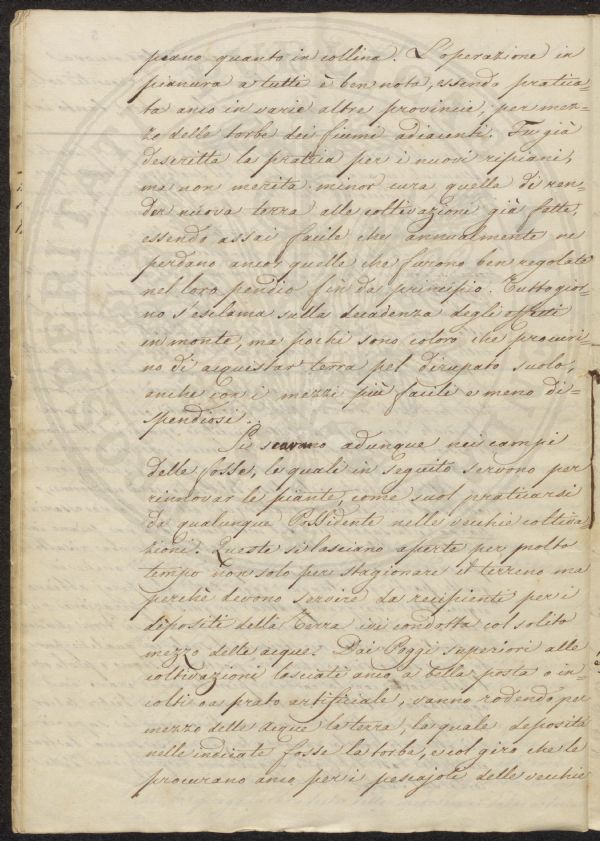 piano quanto in collina. L'operazione in
pianura a tutti è ben nota, essendo pratica=
ta anco in varie altre provincie, per mez=
zo delle torbe dei fiumi adiacenti. Fu già
descritta la pratica per i nuovi ripiani,
ma non merita minor cura quella di ren=
der nuova terra alle coltivazioni già fatte,
essendo assai facile che annualmente ne
perdano anco quelle che furono ben regolate
nel loro pendio fin da principio. Tutto gior=
no s'esclama sulla decadenza degli effetti
in monte, ma pochi sono coloro che procuri=
no di acquistar terra pel dirupato suolo,
anche con i mezzi più facili e meno di=
spendiosi.
Si scavano adunque nei campi
delle fosse, le quali in seguito servono per
rinnovar le piante, come suol praticarsi
da qualunque Possidente nelle vecchie coltiva=
zioni. Queste si lasciano aperte per molto
tempo non solo per stagionare il terreno ma
perchè devono servire da recipienti per i
depositi della Terra ivi condotta col solito
mezzo delle acque. Dai Poggi superiori alle
coltivazioni lasciati anco a bella posta o in=
colti o a prato artifiziale, vanno rodendo per
mezzo delle Acque la terra, la quale deposita
nelle indicate fosse la torba, e col giro che le
procurano anco per i pescajoli delle vecchie